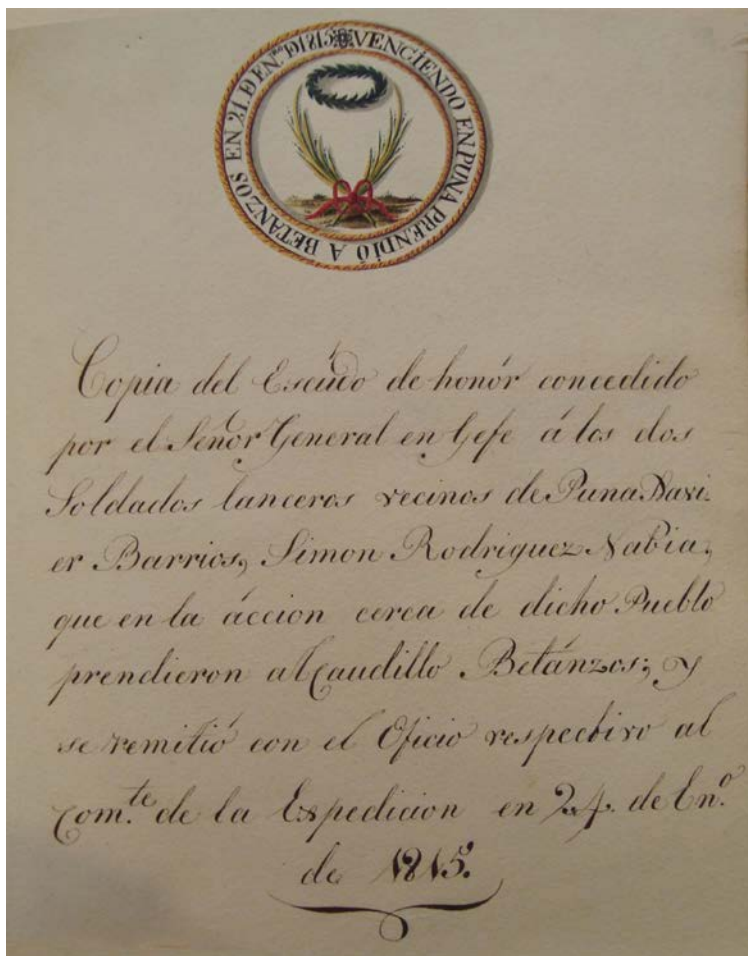 VENCIENDO EN PUNA PRENDIÓ A BETANZOS EN 21. D EN.º D 1815
Copia del Escúdo de honór concedido
por el Señor General en Gefe á los dos
Soldados lanceros vecinos de Puna Xavi-
er Barrios, Simon Rodriguez Nabia,
que en la áccion cerca de dicho Pueblo
prendieron al Caudillo Betánzos; y
se remitió con el Oficio respectivo al
Com.te de la Expedicion en 24. de En.º
de 1815.